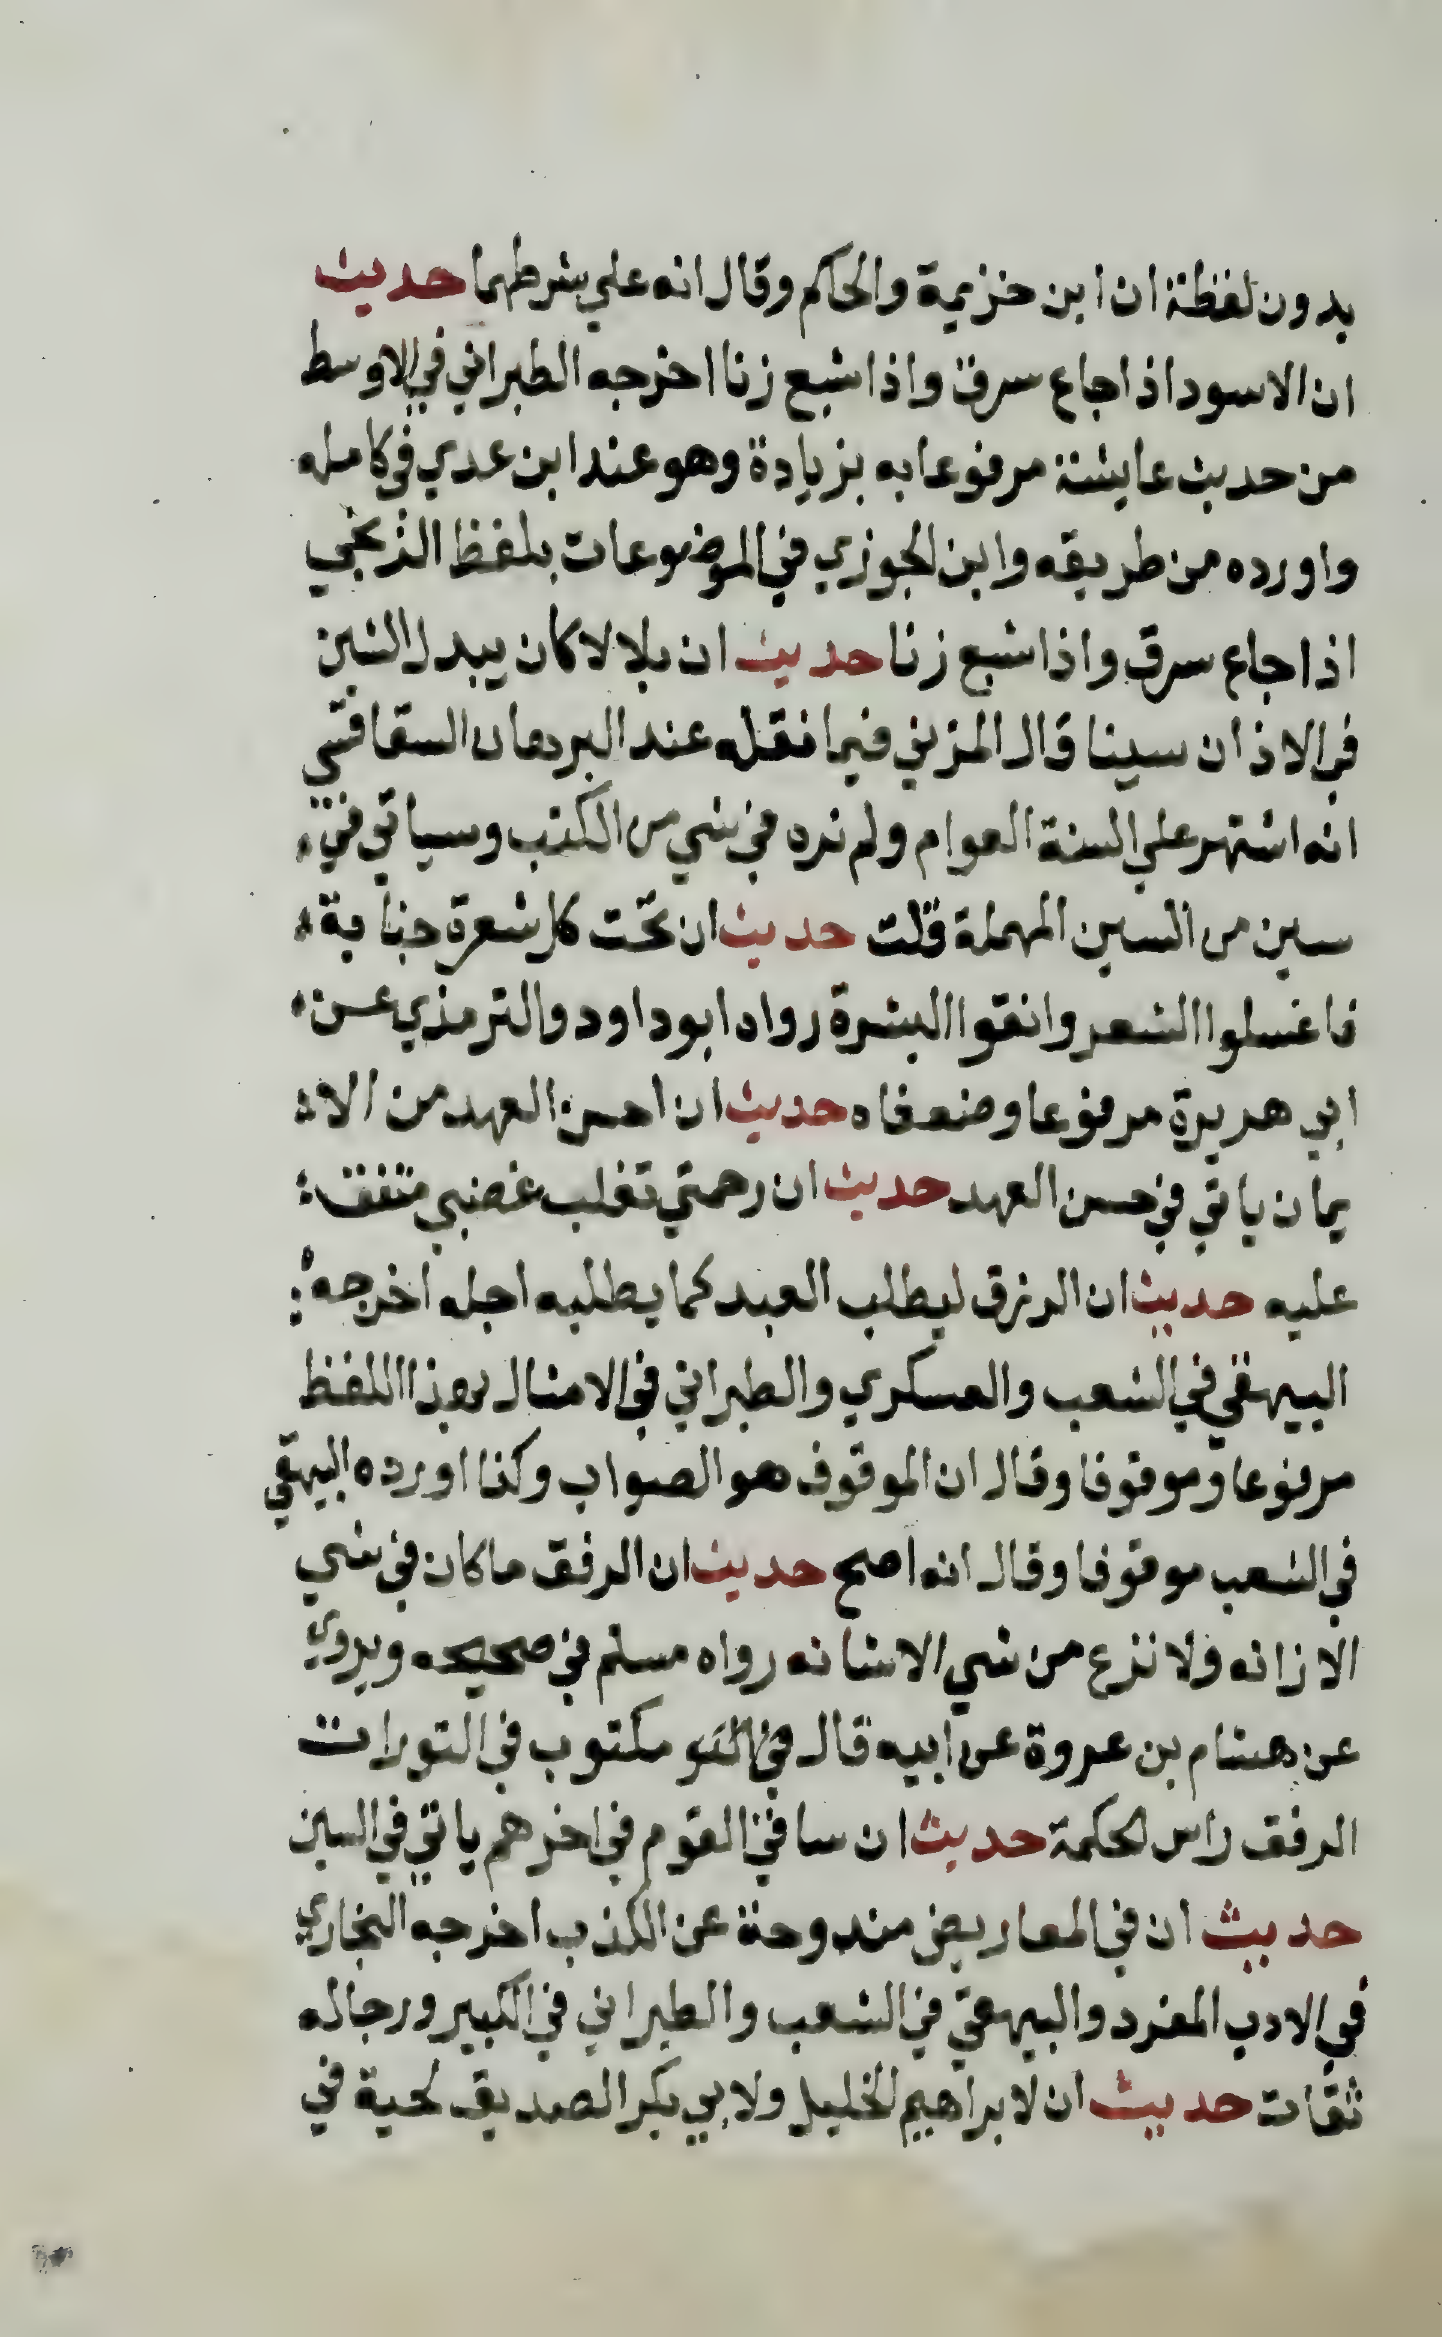 بدون لفظة ان ابن خزيمة والحاكم وقال انه علي شرطهما حديث
ان الاسود اذا جاع سرق واذا شبع زنا اخرجه الطبراني في الاوسط
من حديث عايشة مرفوعا به بزيادة وهو عند ابن عدي في كامله
واورده من طريقه وابن الجوزي في الموضوعات بلفظ الزنجي
اذا جاع سرق واذا شبع زنا حديث ان بلالا كان يبدل الشين
في الاذان سينا قال المزني فيما نقله عند البرهان السفاقسي
انه اشتهر علي السنة العوام ولم نره في شي من الكتب وسياتي في
سين من السين المهملة قلت حديث ان تحت كل شعرة جنابة
فاغسلوا الشعر وانقوا البشرة رواه ابو داود والترمذي عن
ابي هريرة مرفوعا وضعفاه حديث ان احسن العهد من الا
يمان ياتي في حسن العهد حديث ان رحمتي تغلب غضبي متفق
عليه حديث ان الرزق ليطلب العبد كما يطلبه اجله اخرجه
البيهقي في الشعب والعسكري والطبراني في الامثال بهذا اللفظ
مرفوعا وموقوفا وقال ان الموقوف هو الصواب وكذا اورده البيهقي
في الشعب موقوفا وقال انه اصح حديث ان الرفق ما كان في شي
الا زانه ولا نزع من شي الا شانه رواه مسلم في صحيحه ويروي
عن هشام بن عروة عن ابيه قال مكتوب في التورات
الرفق راس الحكمة حديث ان ساقي القوم في اخرهم ياتي في السين
حديث ان في المعاريض مندوحة عن الكذب اخرجه البخاري
في الادب المفرد والبيهقي في الشعب والطبراني في الكبير ورجاله
ثقات حديث ان لابراهيم الخليل ولابي بكر الصديق لحية في